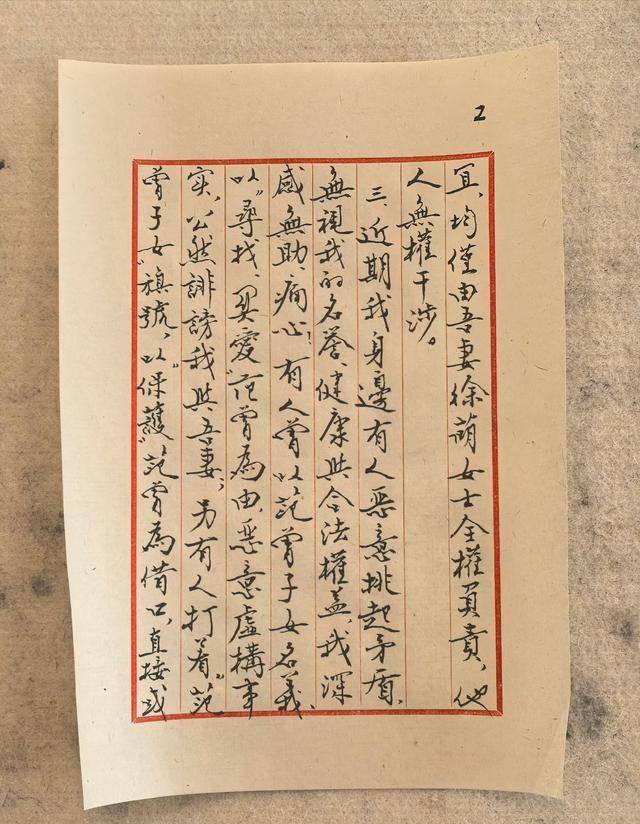 2
宜,均僅由吾妻徐萌女士全權負責,他
人無權干涉。
三、近期我身邊有人惡意挑起矛盾,
無視我的名譽、健康與合法權益,我深
感無助、痛心!有人曾以范曾子女名義,
以“尋找、關愛”范曾為由,惡意虛構事
实,公然誹謗我與吾妻;另有人打着“范
曾子女”旗號,以“保護”范曾為借口,直接或